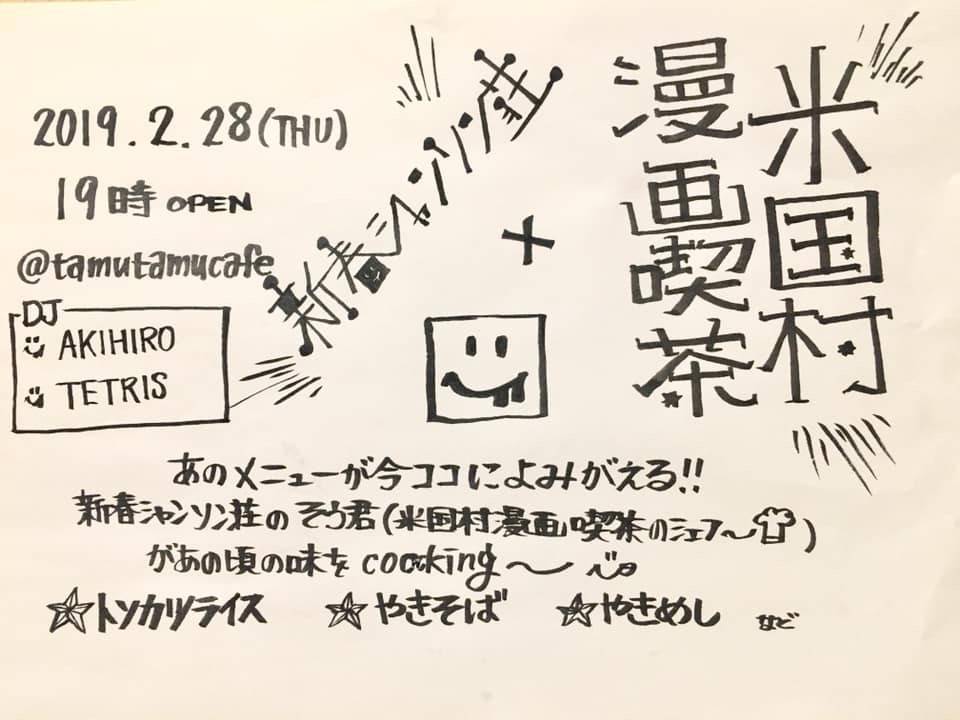 2019.2.28(THU)
19時 OPEN
@tamutamucafe
DJ
AKIHIRO
TETRIS
新春シャンソン荘
×
米国村
漫画喫茶
あのメニューが今ココによみがえる!!
新春シャンソン荘のそう君(米国村漫画喫茶のシェフ〜)
があの頃の味を cooking〜
☆トンカツライス ☆やきそば ☆やきめし など